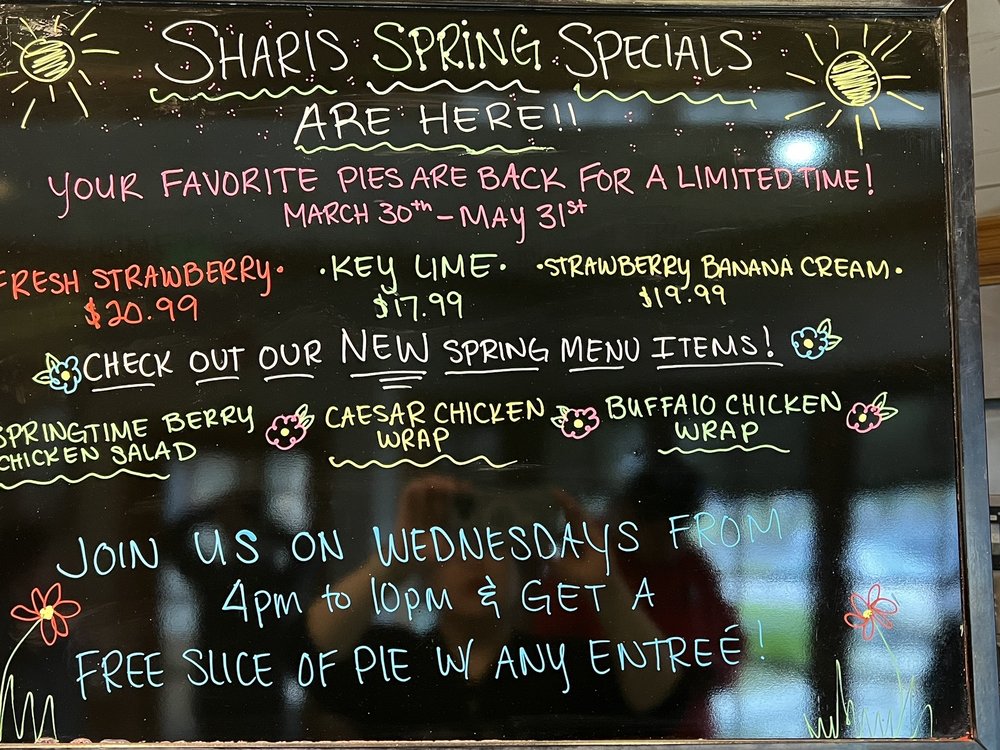 SHARIS SPRING SPECIALS
ARE HERE!!
YOUR FAVORITE PIES ARE BACK FOR A LIMITED TIME!
MARCH 30th - MAY 31st
FRESH STRAWBERRY · · KEY LIME · · STRAWBERRY BANANA CREAM ·
$20.99 $17.99 $19.99
CHECK OUT OUR NEW SPRING MENU ITEMS!
SPRINGTIME BERRY CHICKEN SALAD
CAESAR CHICKEN WRAP
BUFFALO CHICKEN WRAP
JOIN US ON WEDNESDAYS FROM
4pm to 10pm & GET A
FREE SLICE OF PIE W/ ANY ENTREÉ!